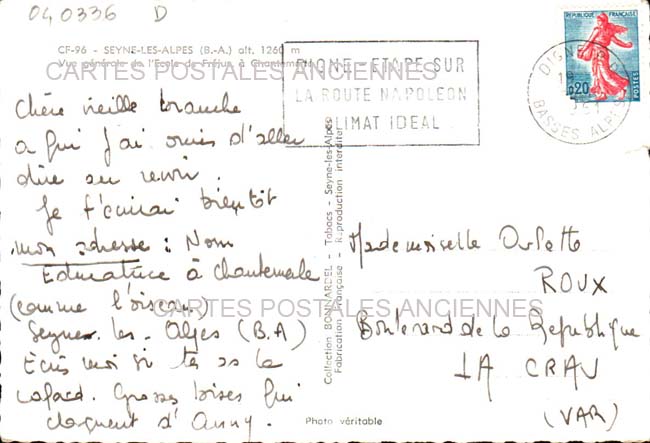 040336 D
CF-96 - SEYNE-LES-ALPES (B.-A.) alt. 1260 m
Vue générale de l'Ecole de Fréjus à Chantemerle
CARTES POSTALES ANCIENNES
Chère vieille branche
a qui j'ai omis d'aller
dire au revoir.
Je t'écrirai bientôt
mon adresse : Nom
Educatrice à Chantemerle
(comme l'oiseau)
Seyne-les-Alpes (B.A)
Ecris moi si tu as le
cafard. Grosses bises qui
claquent d'Anny.
DIGNE - ETAPE SUR
LA ROUTE NAPOLEON
CLIMAT IDEAL
REPUBLIQUE FRANÇAISE
0,20
POSTES
DIGNE
BASSES ALPES
Collection BONNARDEL - Tabacs - Seyne-les-Alpes
Fabrication Française - Reproduction interdite
Mademoiselle Arlette
ROUX
Boulevard de la République
LA CRAU
(VAR)
CARTES POSTALES ANCIENNES
Photo véritable